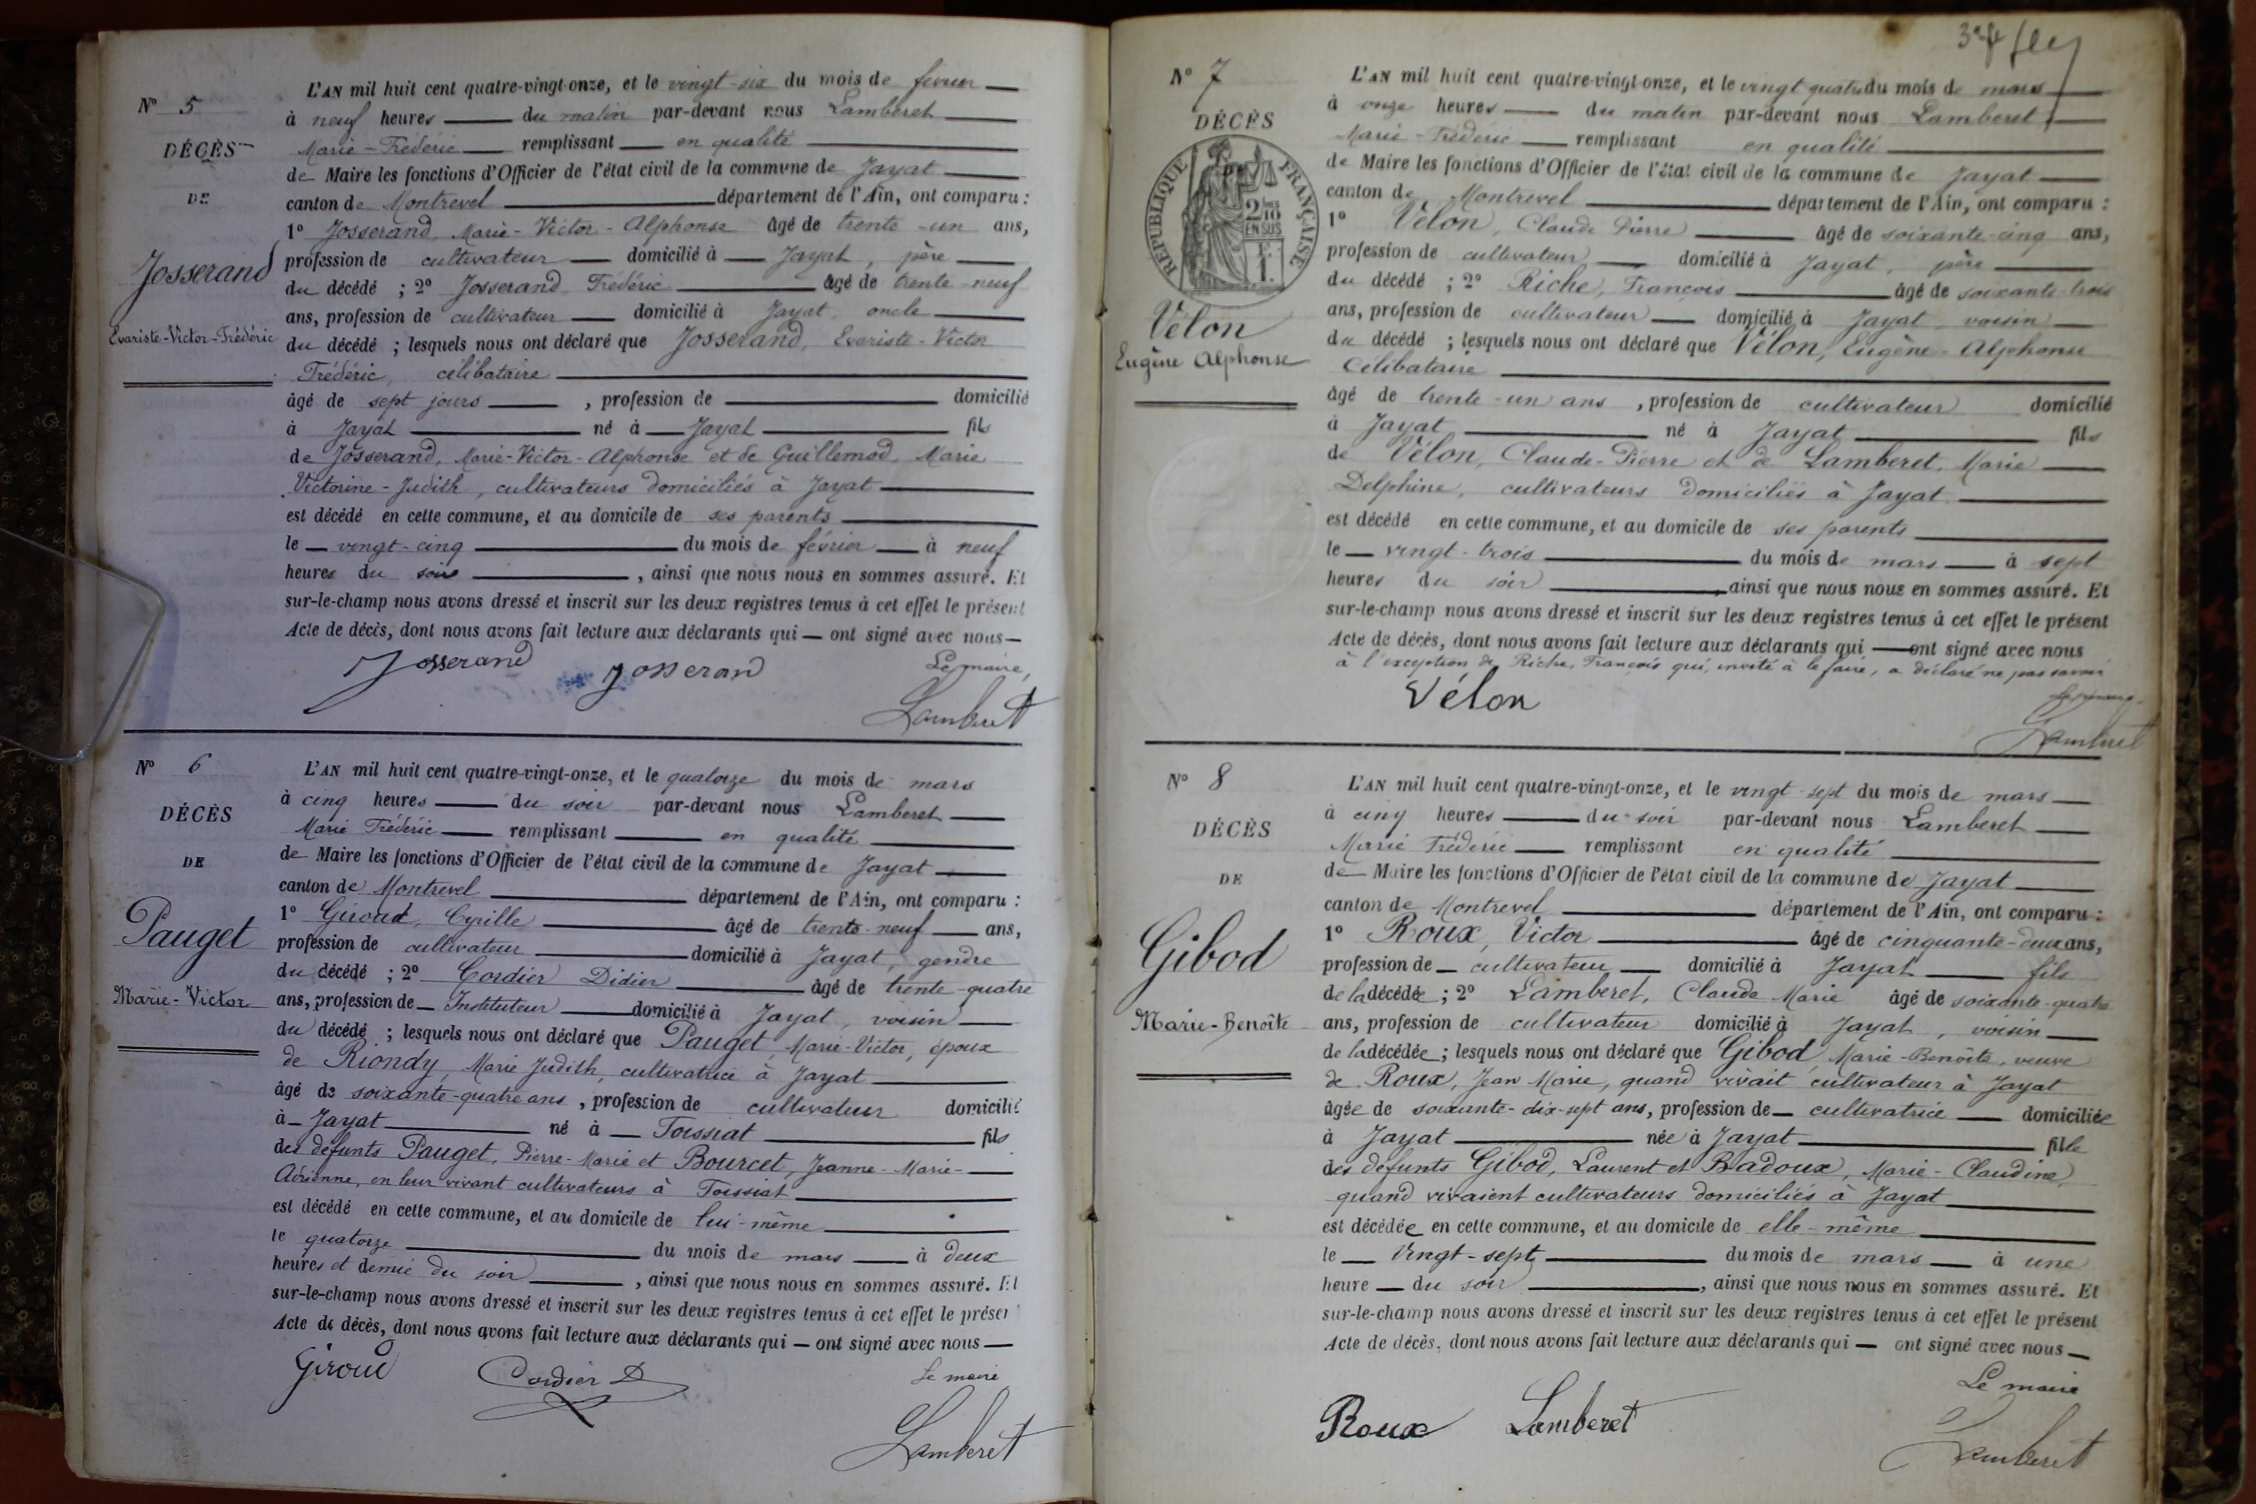 N° 5
DÉCÈS
DE
Josserand
Evariste-Victor-Frédéric
L'AN mil huit cent quatre-vingt-onze, et le vingt-six du mois de février
à neuf heures du matin par-devant nous Lamberet
Marie-Frédéric remplissant en qualité
de Maire les fonctions d'Officier de l'état civil de la commune de Jayat
canton de Montrevel département de l'Ain, ont comparu :
1° Josserand, Marie-Victor-Alphonse âgé de trente-un ans,
profession de cultivateur domicilié à Jayat, père
du décédé ; 2° Josserand Frédéric âgé de trente-neuf
ans, profession de cultivateur domicilié à Jayat, oncle
du décédé ; lesquels nous ont déclaré que Josserand, Evariste-Victor
Frédéric, célibataire
âgé de sept jours , profession de domicilié
à Jayat né à Jayat fils
de Josserand, Marie-Victor-Alphonse et de Guillemod, Marie
Victorine-Judith, cultivateurs domiciliés à Jayat
est décédé en cette commune, et au domicile de ses parents
le vingt-cinq du mois de février à neuf
heures du soir , ainsi que nous nous en sommes assuré. Et
sur-le-champ nous avons dressé et inscrit sur les deux registres tenus à cet effet le présent
Acte de décès, dont nous avons fait lecture aux déclarants qui ont signé avec nous
Josserand Josserand Le maire,
Lamberet
N° 6
DÉCÈS
DE
Pauget
Marie-Victor
L'AN mil huit cent quatre-vingt-onze, et le quatorze du mois de mars
à cinq heures du soir par-devant nous Lamberet
Marie Frédéric remplissant en qualité
de Maire les fonctions d'Officier de l'état civil de la commune de Jayat
canton de Montrevel département de l'Ain, ont comparu :
1° Giroud, Cyrille âgé de trente-neuf ans,
profession de cultivateur domicilié à Jayat, gendre
du décédé ; 2° Cordier Didier âgé de trente-quatre
ans, profession de Instituteur domicilié à Jayat, voisin
du décédé ; lesquels nous ont déclaré que Pauget, Marie-Victor, époux
de Riondy, Marie Judith, cultivatrice à Jayat
âgé de soixante-quatre ans , profession de cultivateur domicilié
à Jayat né à Foissiat fils
des défunts Pauget, Pierre-Marie et Bourcet, Jeanne-Marie-
Adrienne, en leur vivant cultivateurs à Foissiat
est décédé en cette commune, et au domicile de lui-même
le quatorze du mois de mars à deux
heures et demie du soir , ainsi que nous nous en sommes assuré. Et
sur-le-champ nous avons dressé et inscrit sur les deux registres tenus à cet effet le présent
Acte de décès, dont nous avons fait lecture aux déclarants qui ont signé avec nous
Giroud Cordier D Le maire
Lamberet
N° 7
DÉCÈS
RÉPUBLIQUE FRANÇAISE
2/10
EN SUS
Vélon
Eugène Alphonse
L'AN mil huit cent quatre-vingt-onze, et le vingt quatre du mois de mars
à onze heures du matin par-devant nous Lamberet
Marie-Frédéric remplissant en qualité
de Maire les fonctions d'Officier de l'état civil de la commune de Jayat
canton de Montrevel département de l'Ain, ont comparu :
1° Vélon, Claude Pierre âgé de soixante-cinq ans,
profession de cultivateur domicilié à Jayat, père
du décédé ; 2° Riche, François âgé de soixante-trois
ans, profession de cultivateur domicilié à Jayat, voisin
du décédé ; lesquels nous ont déclaré que Vélon, Eugène-Alphonse
célibataire
âgé de trente-un ans , profession de cultivateur domicilié
à Jayat né à Jayat fils
de Vélon, Claude-Pierre et de Lamberet, Marie
Delphine, cultivateurs domiciliés à Jayat
est décédé en cette commune, et au domicile de ses parents
le vingt-trois du mois de mars à sept
heures du soir , ainsi que nous nous en sommes assuré. Et
sur-le-champ nous avons dressé et inscrit sur les deux registres tenus à cet effet le présent
Acte de décès, dont nous avons fait lecture aux déclarants qui ont signé avec nous
à l'exception de Riche, François qui, invité à le faire, a déclaré ne pas savoir
Vélon
Lamberet
N° 8
DÉCÈS
DE
Gibod
Marie-Benoîte
L'AN mil huit cent quatre-vingt-onze, et le vingt-sept du mois de mars
à cinq heures du soir par-devant nous Lamberet
Marie Frédéric remplissant en qualité
de Maire les fonctions d'Officier de l'état civil de la commune de Jayat
canton de Montrevel département de l'Ain, ont comparu :
1° Roux, Victor âgé de cinquante-deux ans,
profession de cultivateur domicilié à Jayat fils
de la décédée ; 2° Lamberet, Claude Marie âgé de soixante-quatre
ans, profession de cultivateur domicilié à Jayat, voisin
de la décédée ; lesquels nous ont déclaré que Gibod, Marie-Benoîte, veuve
de Roux, Jean Marie, quand vivait cultivateur à Jayat
âgée de soixante-dix-sept ans, profession de cultivatrice domiciliée
à Jayat née à Jayat fille
des défunts Gibod, Laurent et Badoux, Marie-Claudine,
quand vivaient cultivateurs domiciliés à Jayat
est décédée en cette commune, et au domicile de elle-même
le Vingt-sept du mois de mars à une
heure du soir , ainsi que nous nous en sommes assuré. Et
sur-le-champ nous avons dressé et inscrit sur les deux registres tenus à cet effet le présent
Acte de décès, dont nous avons fait lecture aux déclarants qui ont signé avec nous
Roux Lamberet Le maire
Lamberet